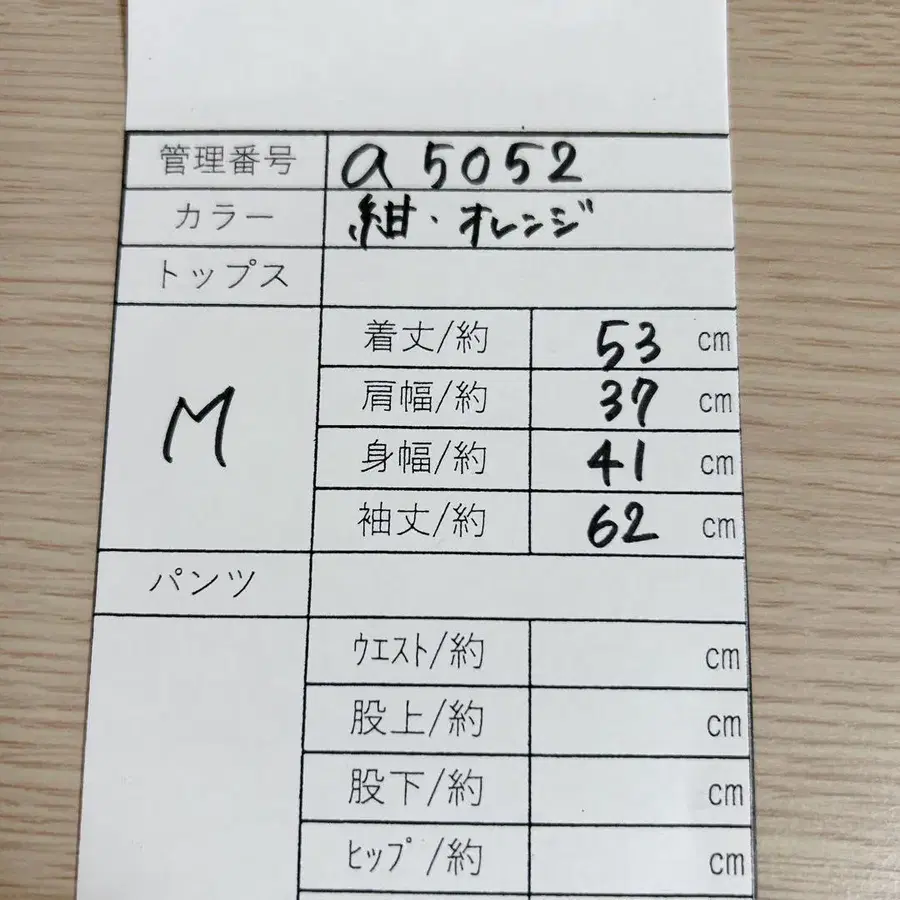 管理番号 a5052
カラー 紺・オレンジ
トップス
M
着丈/約 53 cm
肩幅/約 37 cm
身幅/約 41 cm
袖丈/約 62 cm
パンツ
ウエスト/約 cm
股上/約 cm
股下/約 cm
ヒップ/約 cm